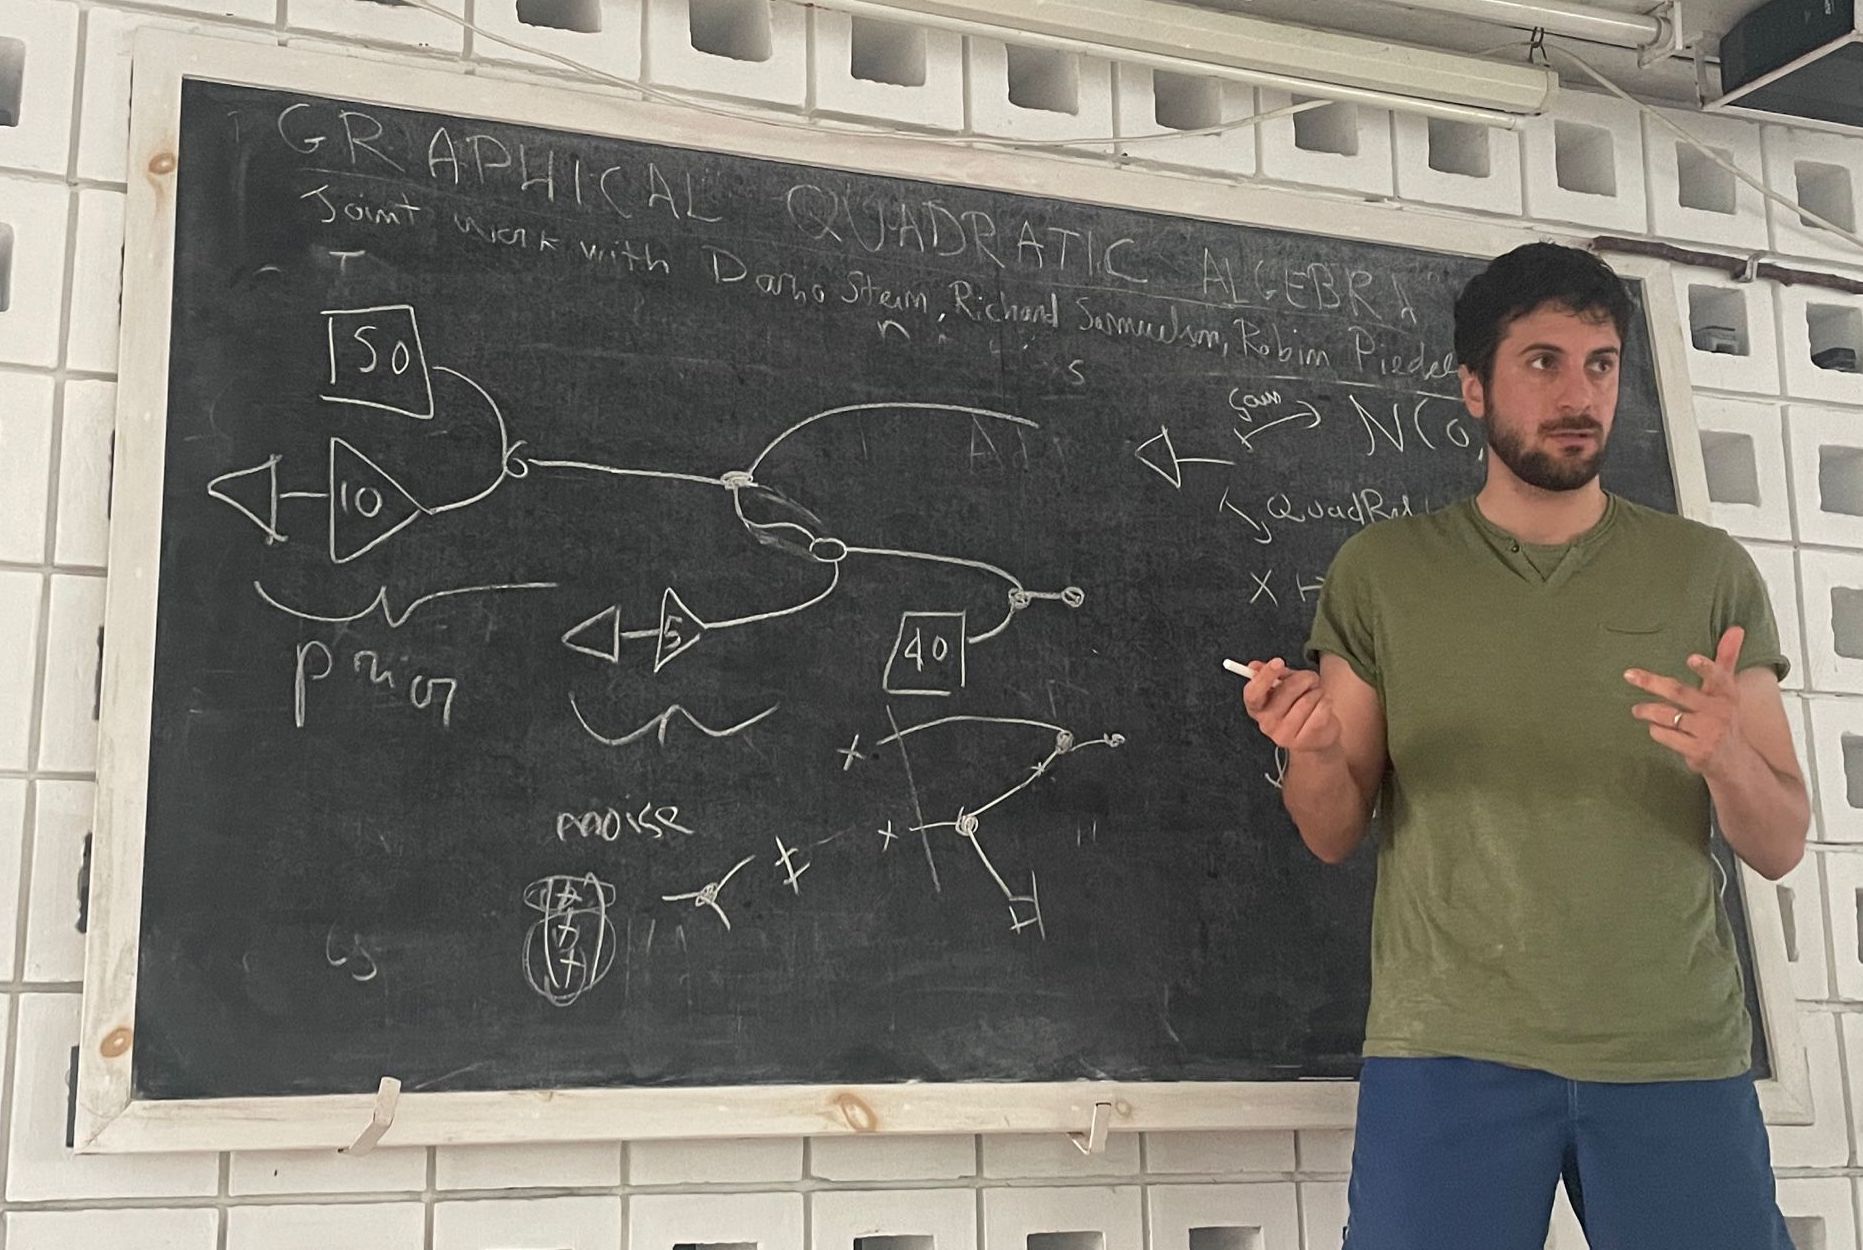 GRAPHICAL QUADRATIC ALGEBRA
Joint work with Dario Stein, Richard Samuelson, Robin Piedel
50
10
prior
5
noise
40
x
x
Gauss
N(0,
QuadRel
x ↦